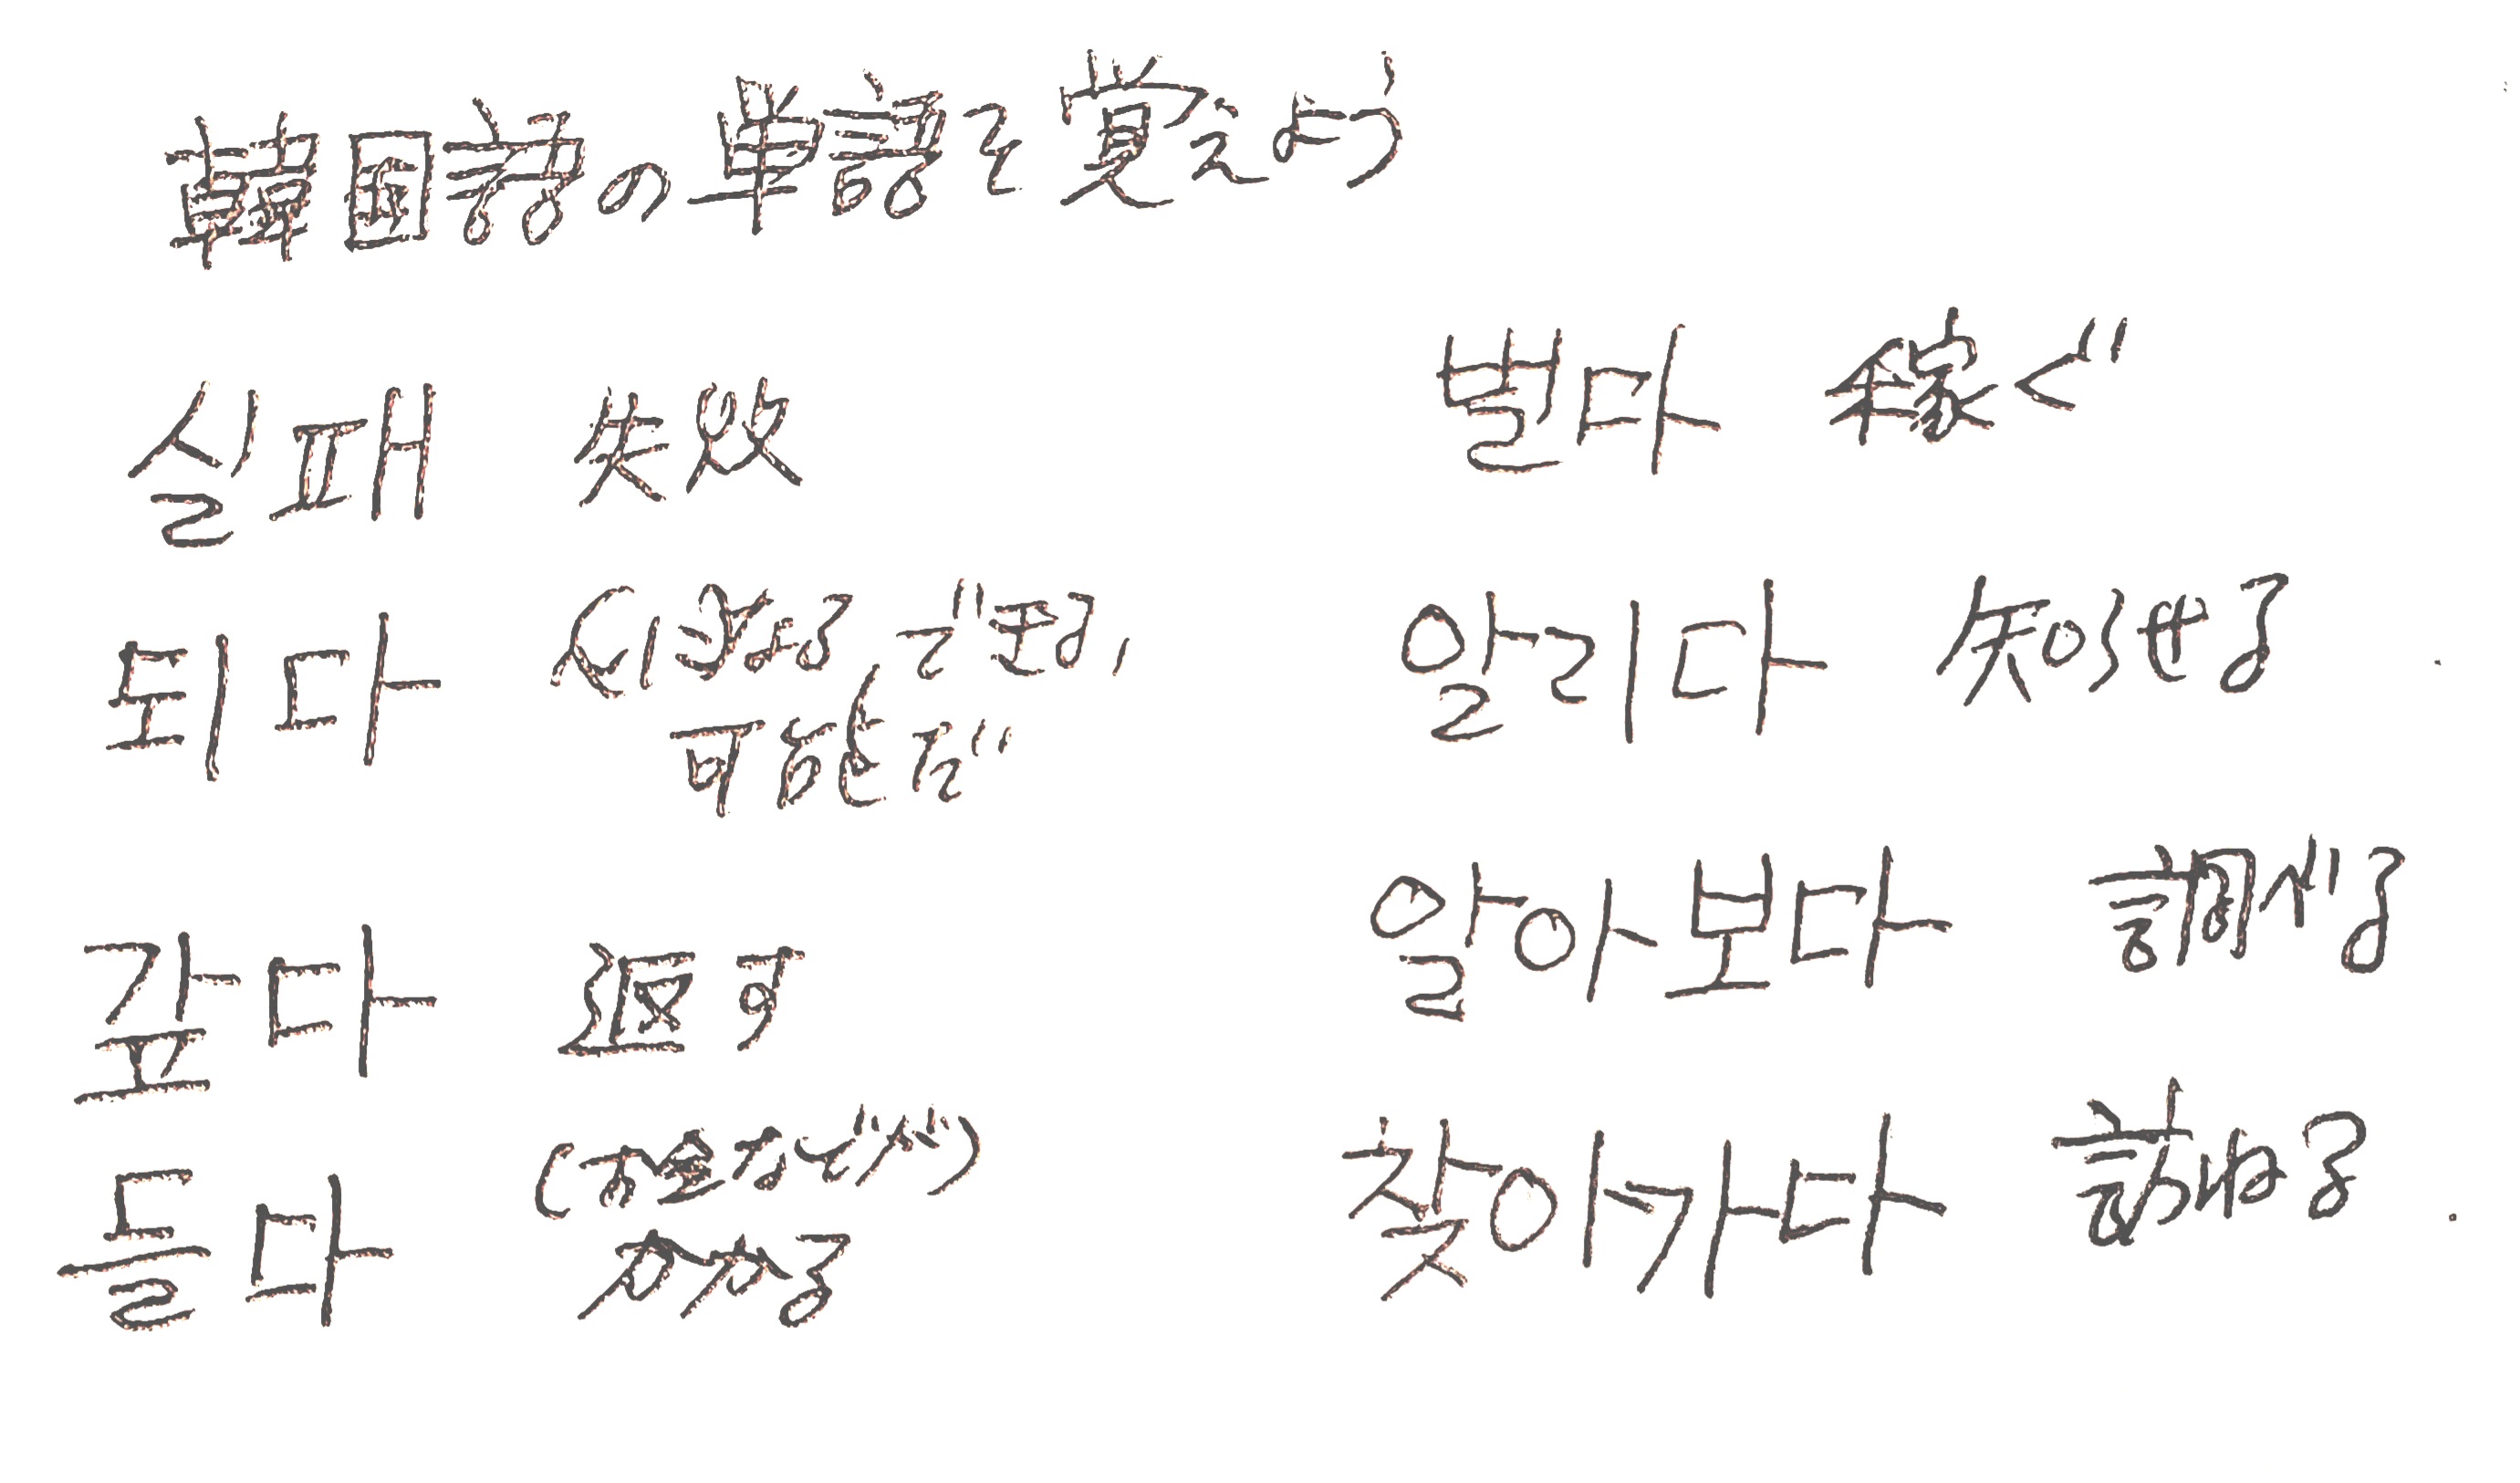 韓国語の単語を覚えよう
실패 失敗
되다 できる,
可能だ
갚다 返す
들다 (お金などが)
かかる
벌다 稼ぐ
알리다 知らせる
알아보다 調べる
찾아가다 訪ねる